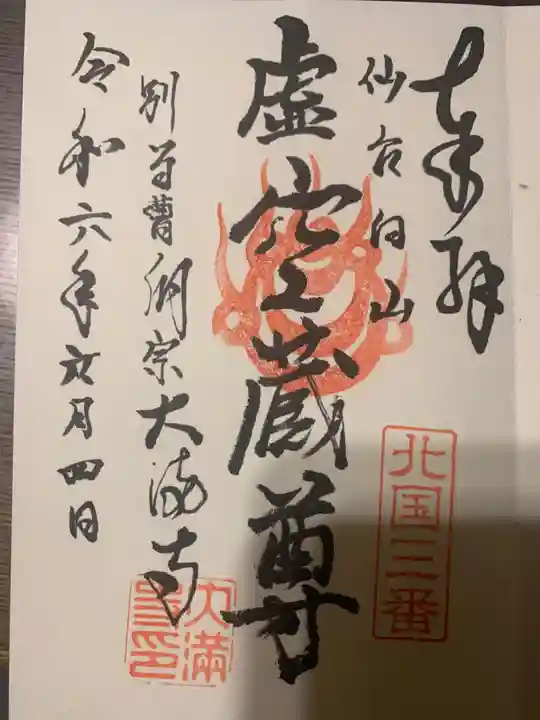 奉拝
仙台向山
北国三番
虚空蔵尊
別当曹洞宗大満寺
大満
令和六年六月四日